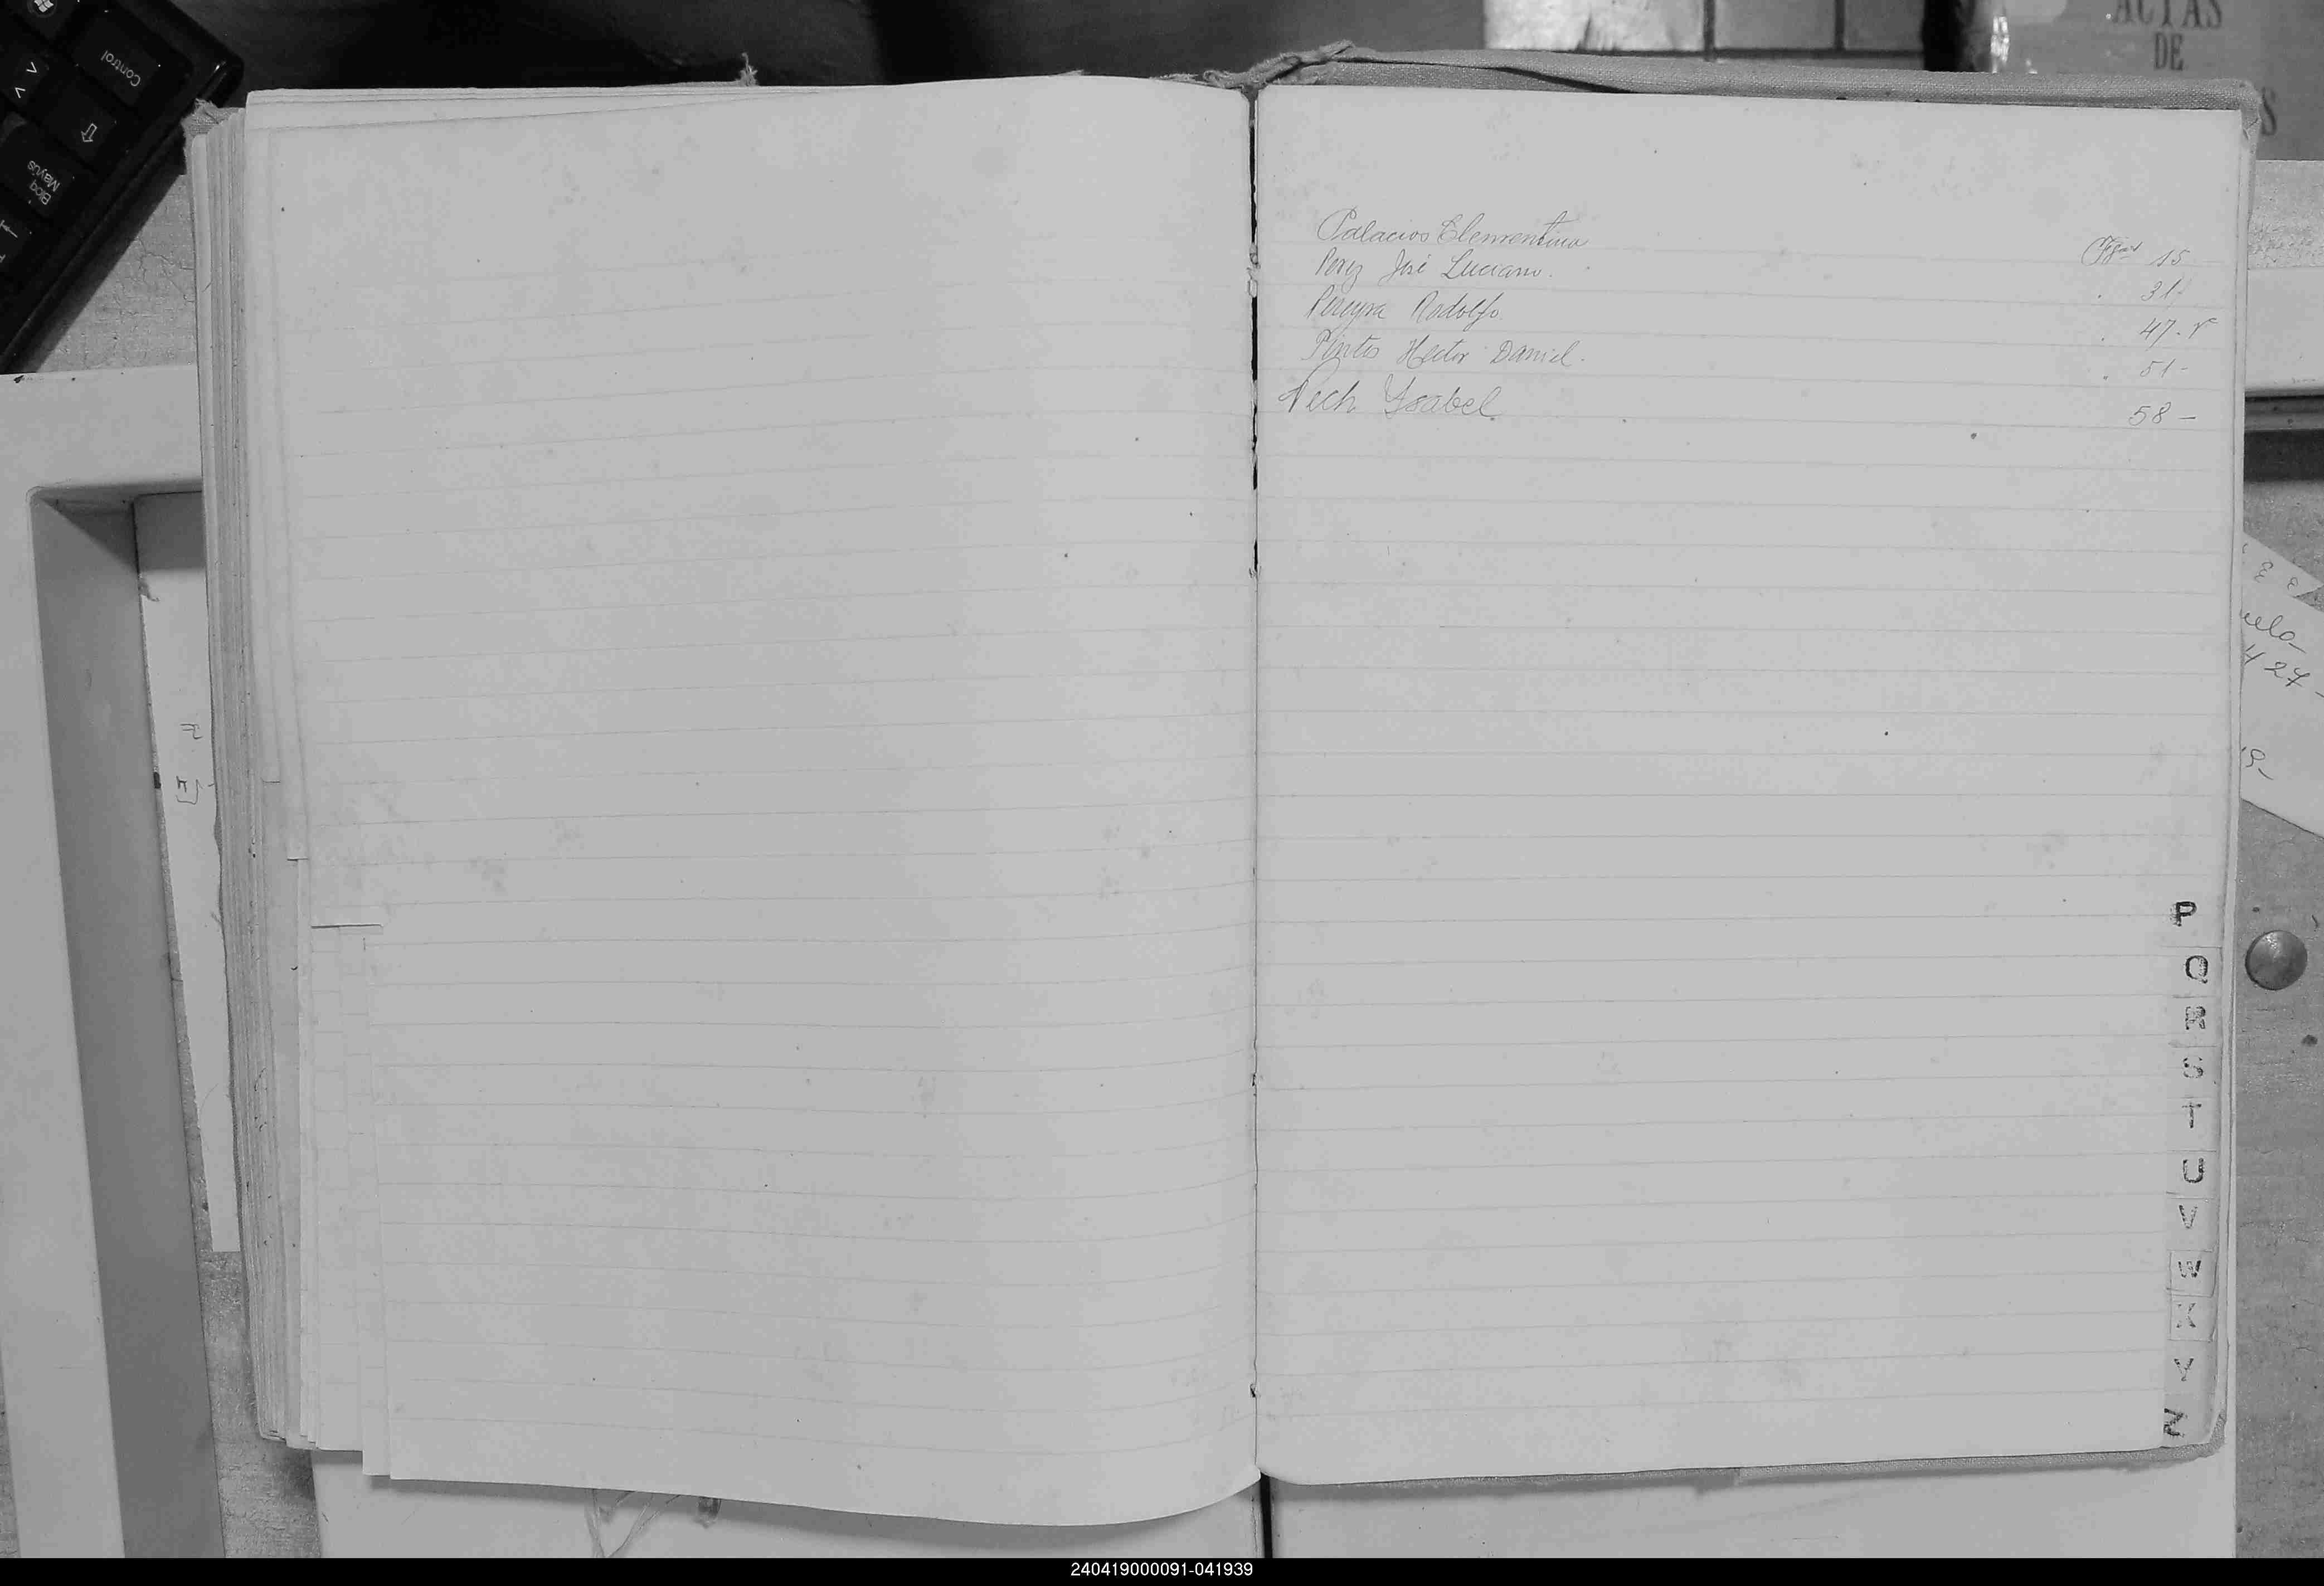 Control
Bloq
Mayús
ACTAS
DE
Palacios Clementina 15
Perez José Luciano. 31
Pereyra Rodolfo. 47. v
Pintos Hector Daniel. 51-
Pech Ysabel. 58-
27-
P
Q
R
S
T
U
V
W
X
Y
Z
240419000091-041939